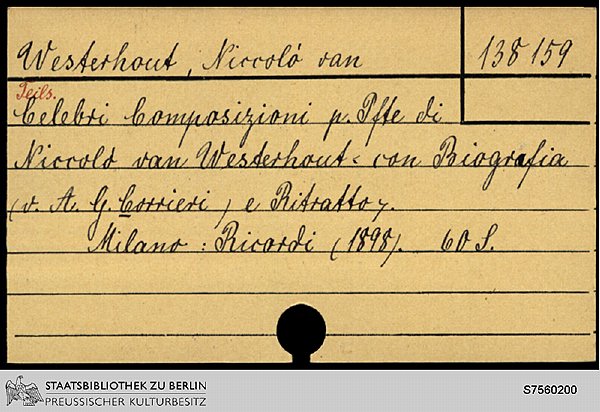 Westerhout, Niccoló van 138 159
Teils.
Celebri Composizioni p. Pfte di
Niccoló van Westerhout < con Biografia
(v. A. G. Corrieri) e Ritratto >.
Milano: Ricordi (1898). 60 S.
STAATSBIBLIOTHEK ZU BERLIN
PREUSSISCHER KULTURBESITZ
S7560200